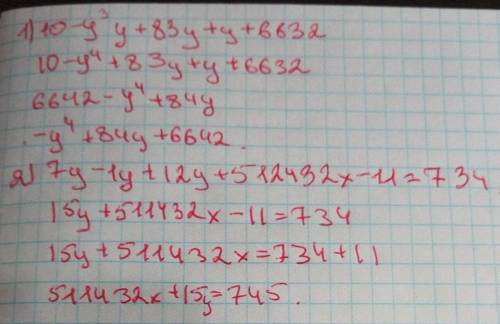 1) 10-y³y+83y+y+6632
10-y⁴+83y+y+6632
6642-y⁴+84y
-y⁴+84y+6642.
2) 7y-1y+12y+512432x-11=734
15y+511432x-11=734
15y+511432x=734+11
511432x+15y=745.